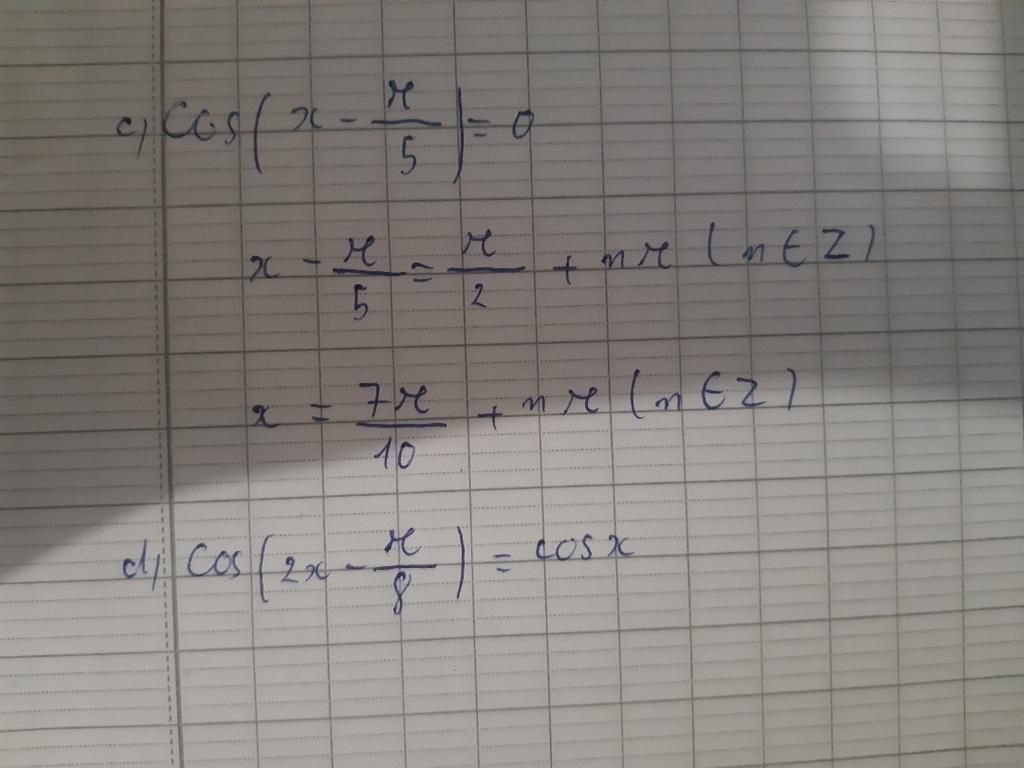 c) Cos(x - π/5) = 0
x - π/5 = π/2 + nπ (n ∈ Z)
x = 7π/10 + nπ (n ∈ Z)
d) Cos(2x - π/8) = cosx